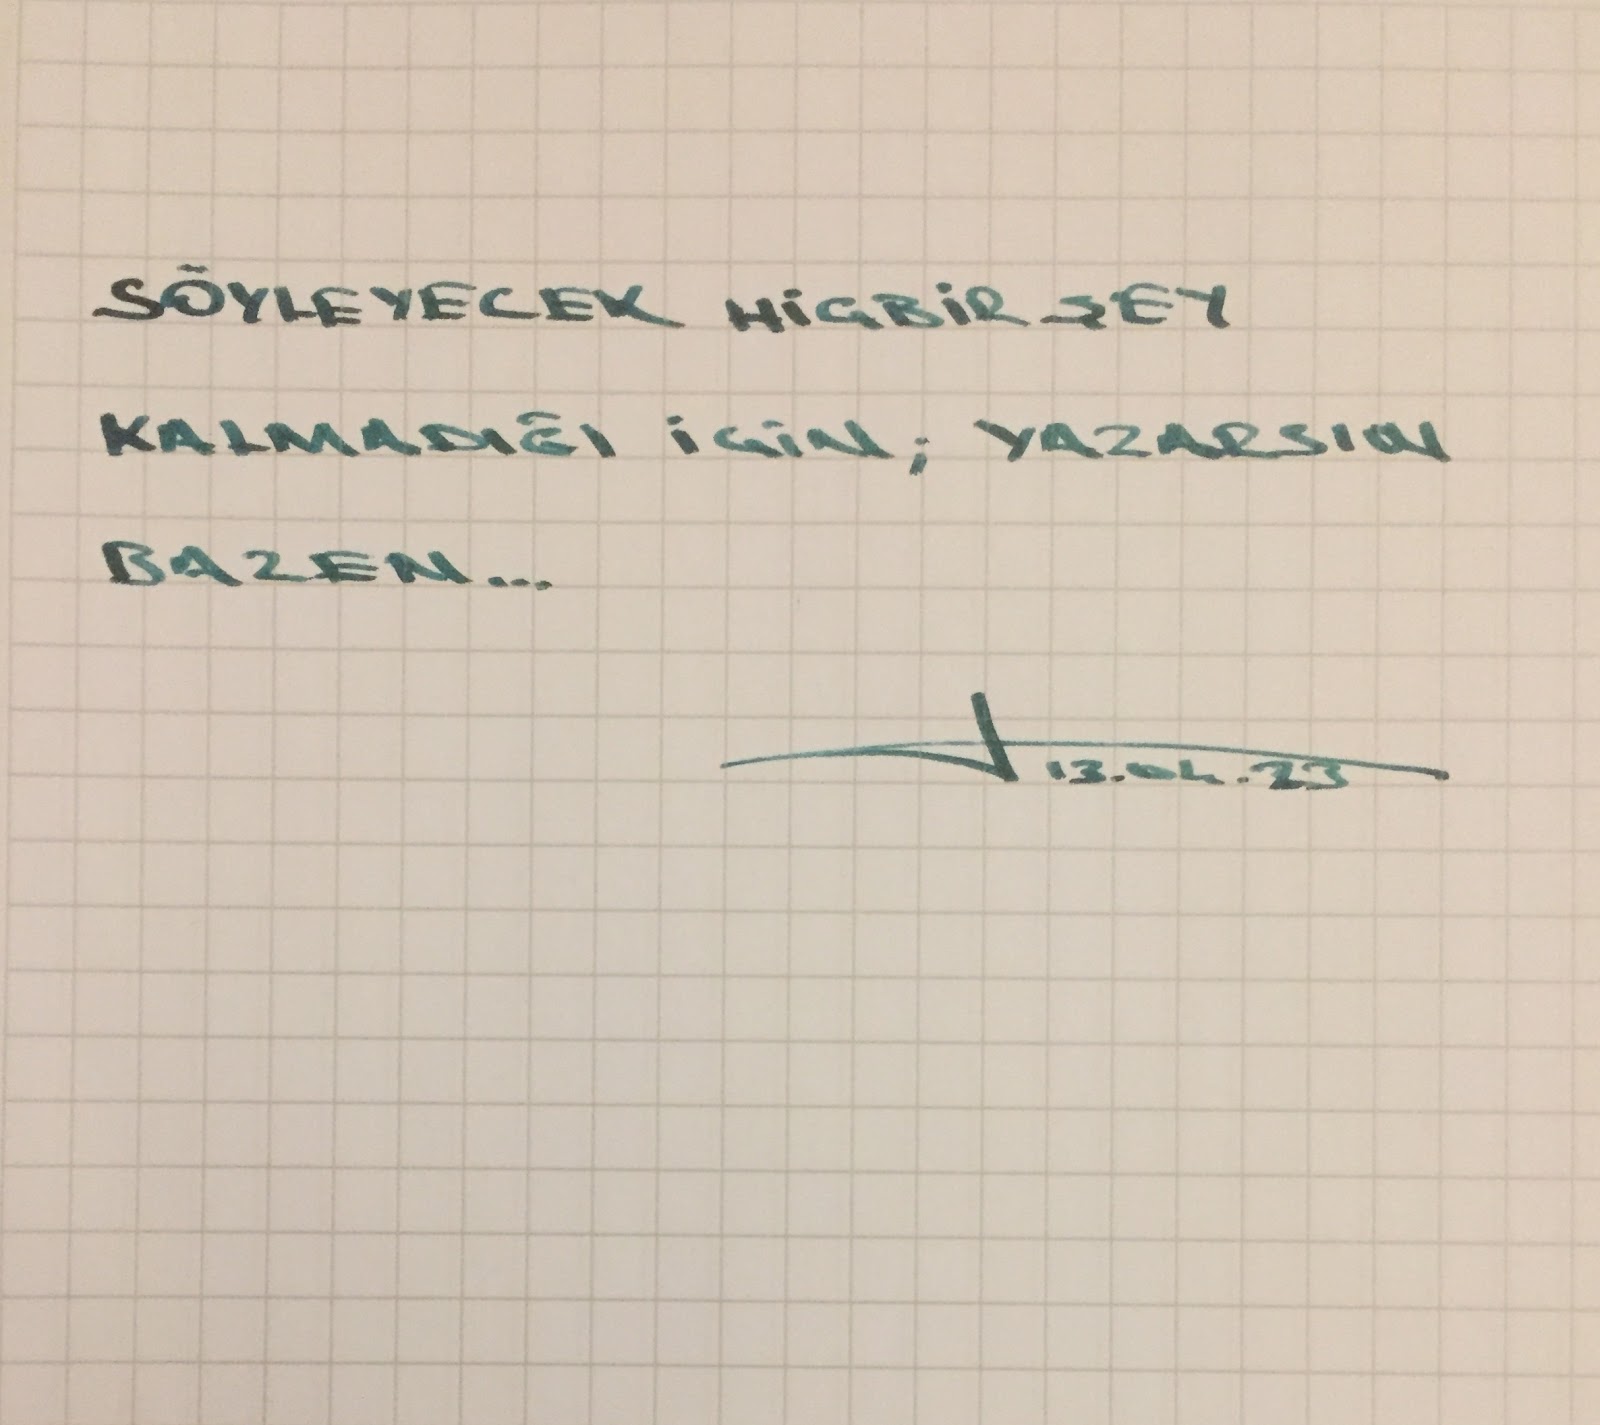 SÖYLEYECEK HİÇBİR ŞEY
KALMADIĞI İÇİN; YAZARSIN
BAZEN...
13.04.23